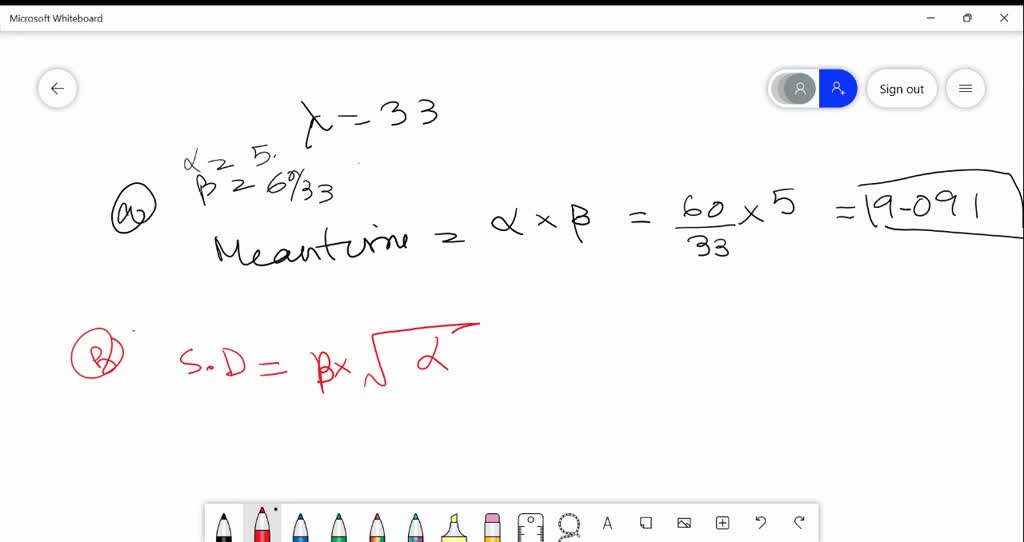 Microsoft Whiteboard
Sign out
λ = 33
α = 5.
β = 60/33
(a)
Meantime = α × β = 60/33 × 5 = 19-091
(B)
S.D = β× √α
A